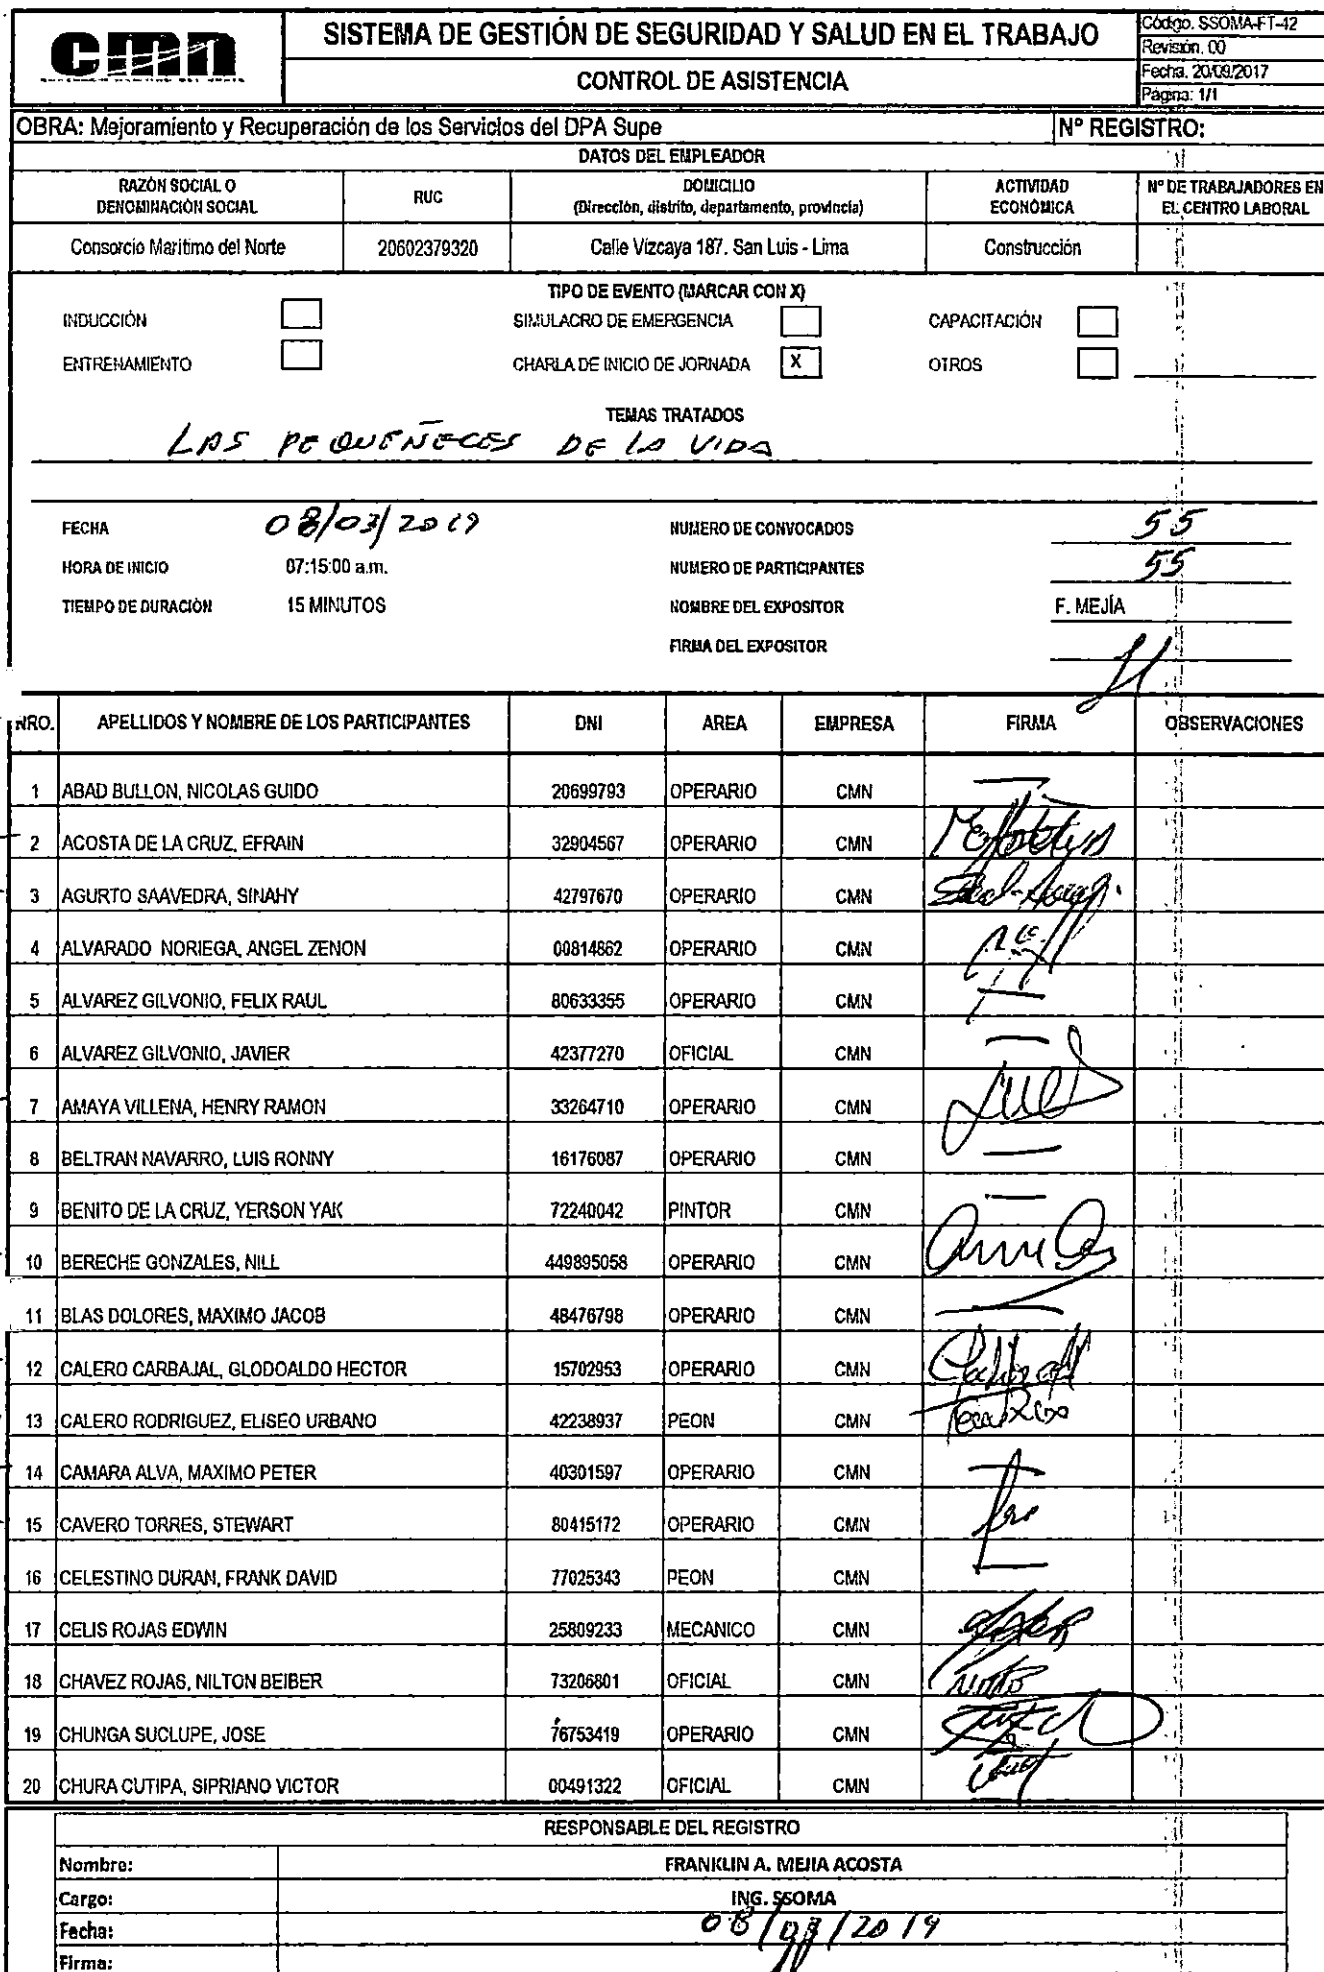 cmn
SISTEMA DE GESTIÓN DE SEGURIDAD Y SALUD EN EL TRABAJO
CONTROL DE ASISTENCIA
Código. SSOMA-FT-42
Revisión. 00
Fecha. 20/09/2017
Página: 1/1
OBRA: Mejoramiento y Recuperación de los Servicios del DPA Supe
Nº REGISTRO:
DATOS DEL EMPLEADOR
RAZÓN SOCIAL O DENOMINACIÓN SOCIAL
RUC
DOMICILIO (Dirección, distrito, departamento, provincia)
ACTIVIDAD ECONÓMICA
Nº DE TRABAJADORES EN EL CENTRO LABORAL
Consorcio Marítimo del Norte 20602379320 Calle Vizcaya 187. San Luis - Lima Construcción
TIPO DE EVENTO (MARCAR CON X)
INDUCCIÓN SIMULACRO DE EMERGENCIA CAPACITACIÓN
ENTRENAMIENTO CHARLA DE INICIO DE JORNADA X OTROS
TEMAS TRATADOS
LAS PEQUEÑECES DE LA VIDA
FECHA 08/03/2019 NUMERO DE CONVOCADOS 55
HORA DE INICIO 07:15:00 a.m. NUMERO DE PARTICIPANTES 55
TIEMPO DE DURACIÓN 15 MINUTOS NOMBRE DEL EXPOSITOR F. MEJÍA
FIRMA DEL EXPOSITOR
NRO. APELLIDOS Y NOMBRE DE LOS PARTICIPANTES DNI AREA EMPRESA FIRMA OBSERVACIONES
1 ABAD BULLON, NICOLAS GUIDO 20699793 OPERARIO CMN
2 ACOSTA DE LA CRUZ, EFRAIN 32904567 OPERARIO CMN
3 AGURTO SAAVEDRA, SINAHY 42797670 OPERARIO CMN
4 ALVARADO NORIEGA, ANGEL ZENON 00814862 OPERARIO CMN
5 ALVAREZ GILVONIO, FELIX RAUL 80633355 OPERARIO CMN
6 ALVAREZ GILVONIO, JAVIER 42377270 OFICIAL CMN
7 AMAYA VILLENA, HENRY RAMON 33264710 OPERARIO CMN
8 BELTRAN NAVARRO, LUIS RONNY 16176087 OPERARIO CMN
9 BENITO DE LA CRUZ, YERSON YAK 72240042 PINTOR CMN
10 BERECHE GONZALES, NILL 449895058 OPERARIO CMN
11 BLAS DOLORES, MAXIMO JACOB 48476798 OPERARIO CMN
12 CALERO CARBAJAL, GLODOALDO HECTOR 15702953 OPERARIO CMN
13 CALERO RODRIGUEZ, ELISEO URBANO 42238937 PEON CMN
14 CAMARA ALVA, MAXIMO PETER 40301597 OPERARIO CMN
15 CAVERO TORRES, STEWART 80415172 OPERARIO CMN
16 CELESTINO DURAN, FRANK DAVID 77025343 PEON CMN
17 CELIS ROJAS EDWIN 25809233 MECANICO CMN
18 CHAVEZ ROJAS, NILTON BEIBER 73206801 OFICIAL CMN
19 CHUNGA SUCLUPE, JOSE 76753419 OPERARIO CMN
20 CHURA CUTIPA, SIPRIANO VICTOR 00491322 OFICIAL CMN
RESPONSABLE DEL REGISTRO
Nombre: FRANKLIN A. MEJIA ACOSTA
Cargo: ING. SSOMA
Fecha: 08/03/2019
Firma: